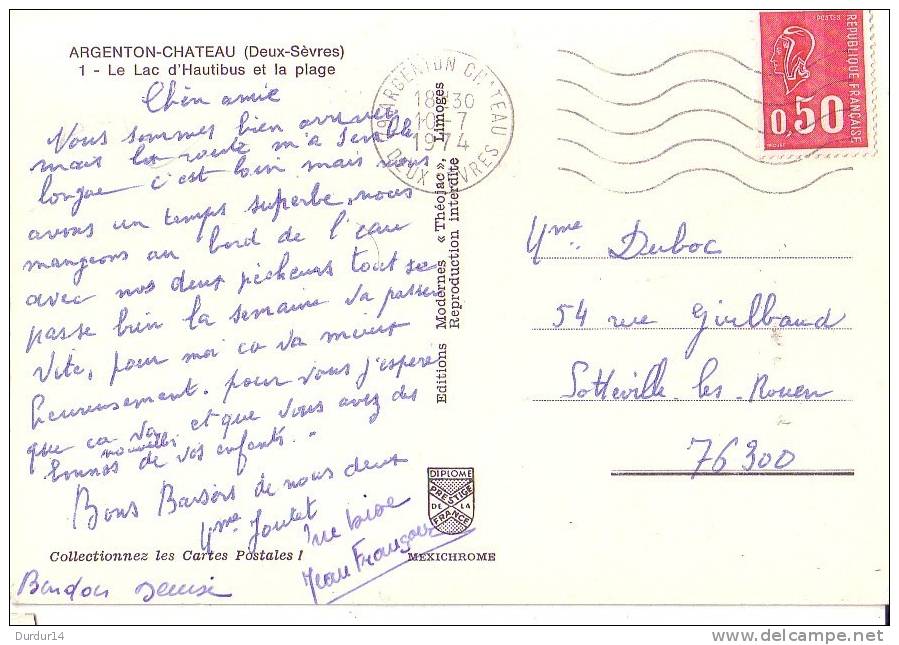 ARGENTON-CHATEAU (Deux-Sèvres)
1 - Le Lac d'Hautibus et la plage
Chèr amie
Vous sommes bien arrivées
mais la route m'a semblé
longue c'est loin mais nous
avons un temps superbe, nous
mangeons au bord de l'eau
avec nos deux pêcheurs tout se
passe bien la semaine va passer
vite, pour moi ca va mieux
heureusement. pour vous j'espère
que ca va et que vous avez des
bonnes nouvelles de vos enfants.
Bons Baisers de nous deux
Mme Joulet
une bise
Jean François
Collectionnez les Cartes Postales !
MEXICHROME
DIPLOME
PRESTIGE
DE LA
FRANCE
Editions Modernes « Théojac », Limoges
Reproduction interdite
79 ARGENTON CHATEAU
18 30
10-7
1974
DEUX SEVRES
POSTES
REPUBLIQUE FRANÇAISE
0,50
Mme Duboc
54 rue Guilbaud
Sotteville les Rouen
76300
Durdur14
www.delcampe.net